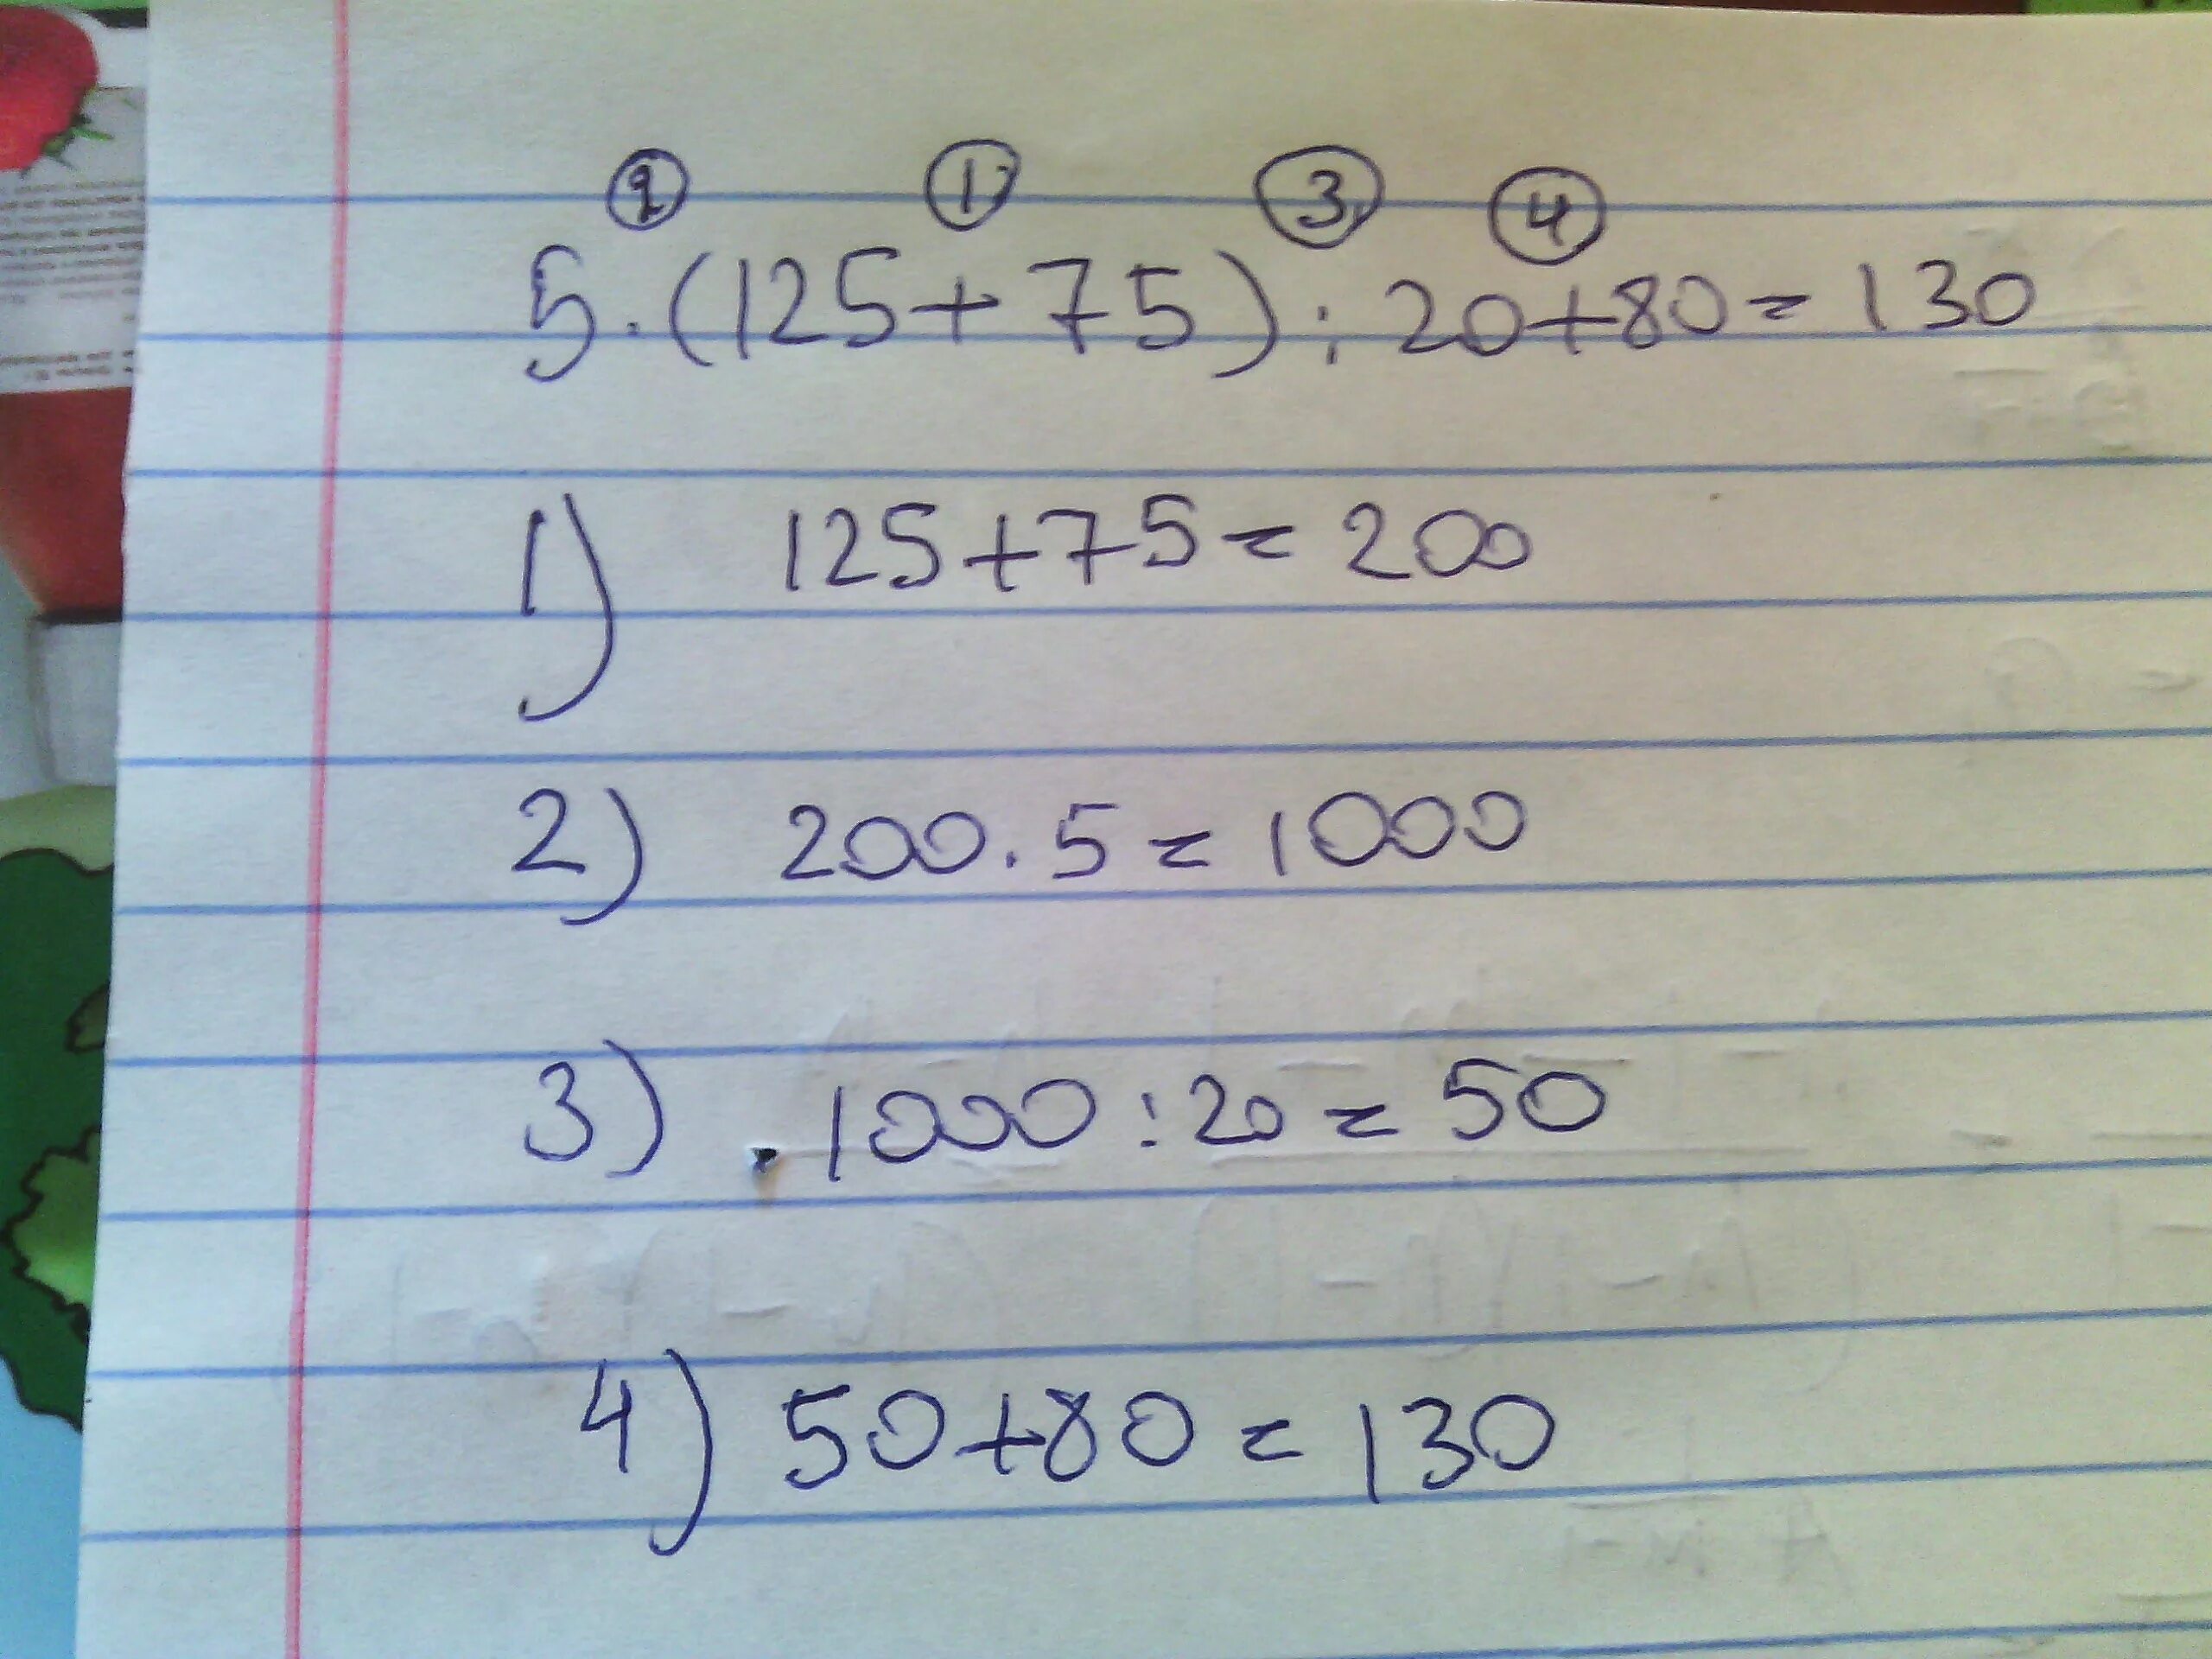 ② ① ③ ④
5·(125+75):20+80=130
1) 125+75=200
2) 200·5=1000
3) 1000:20=50
4) 50+80=130